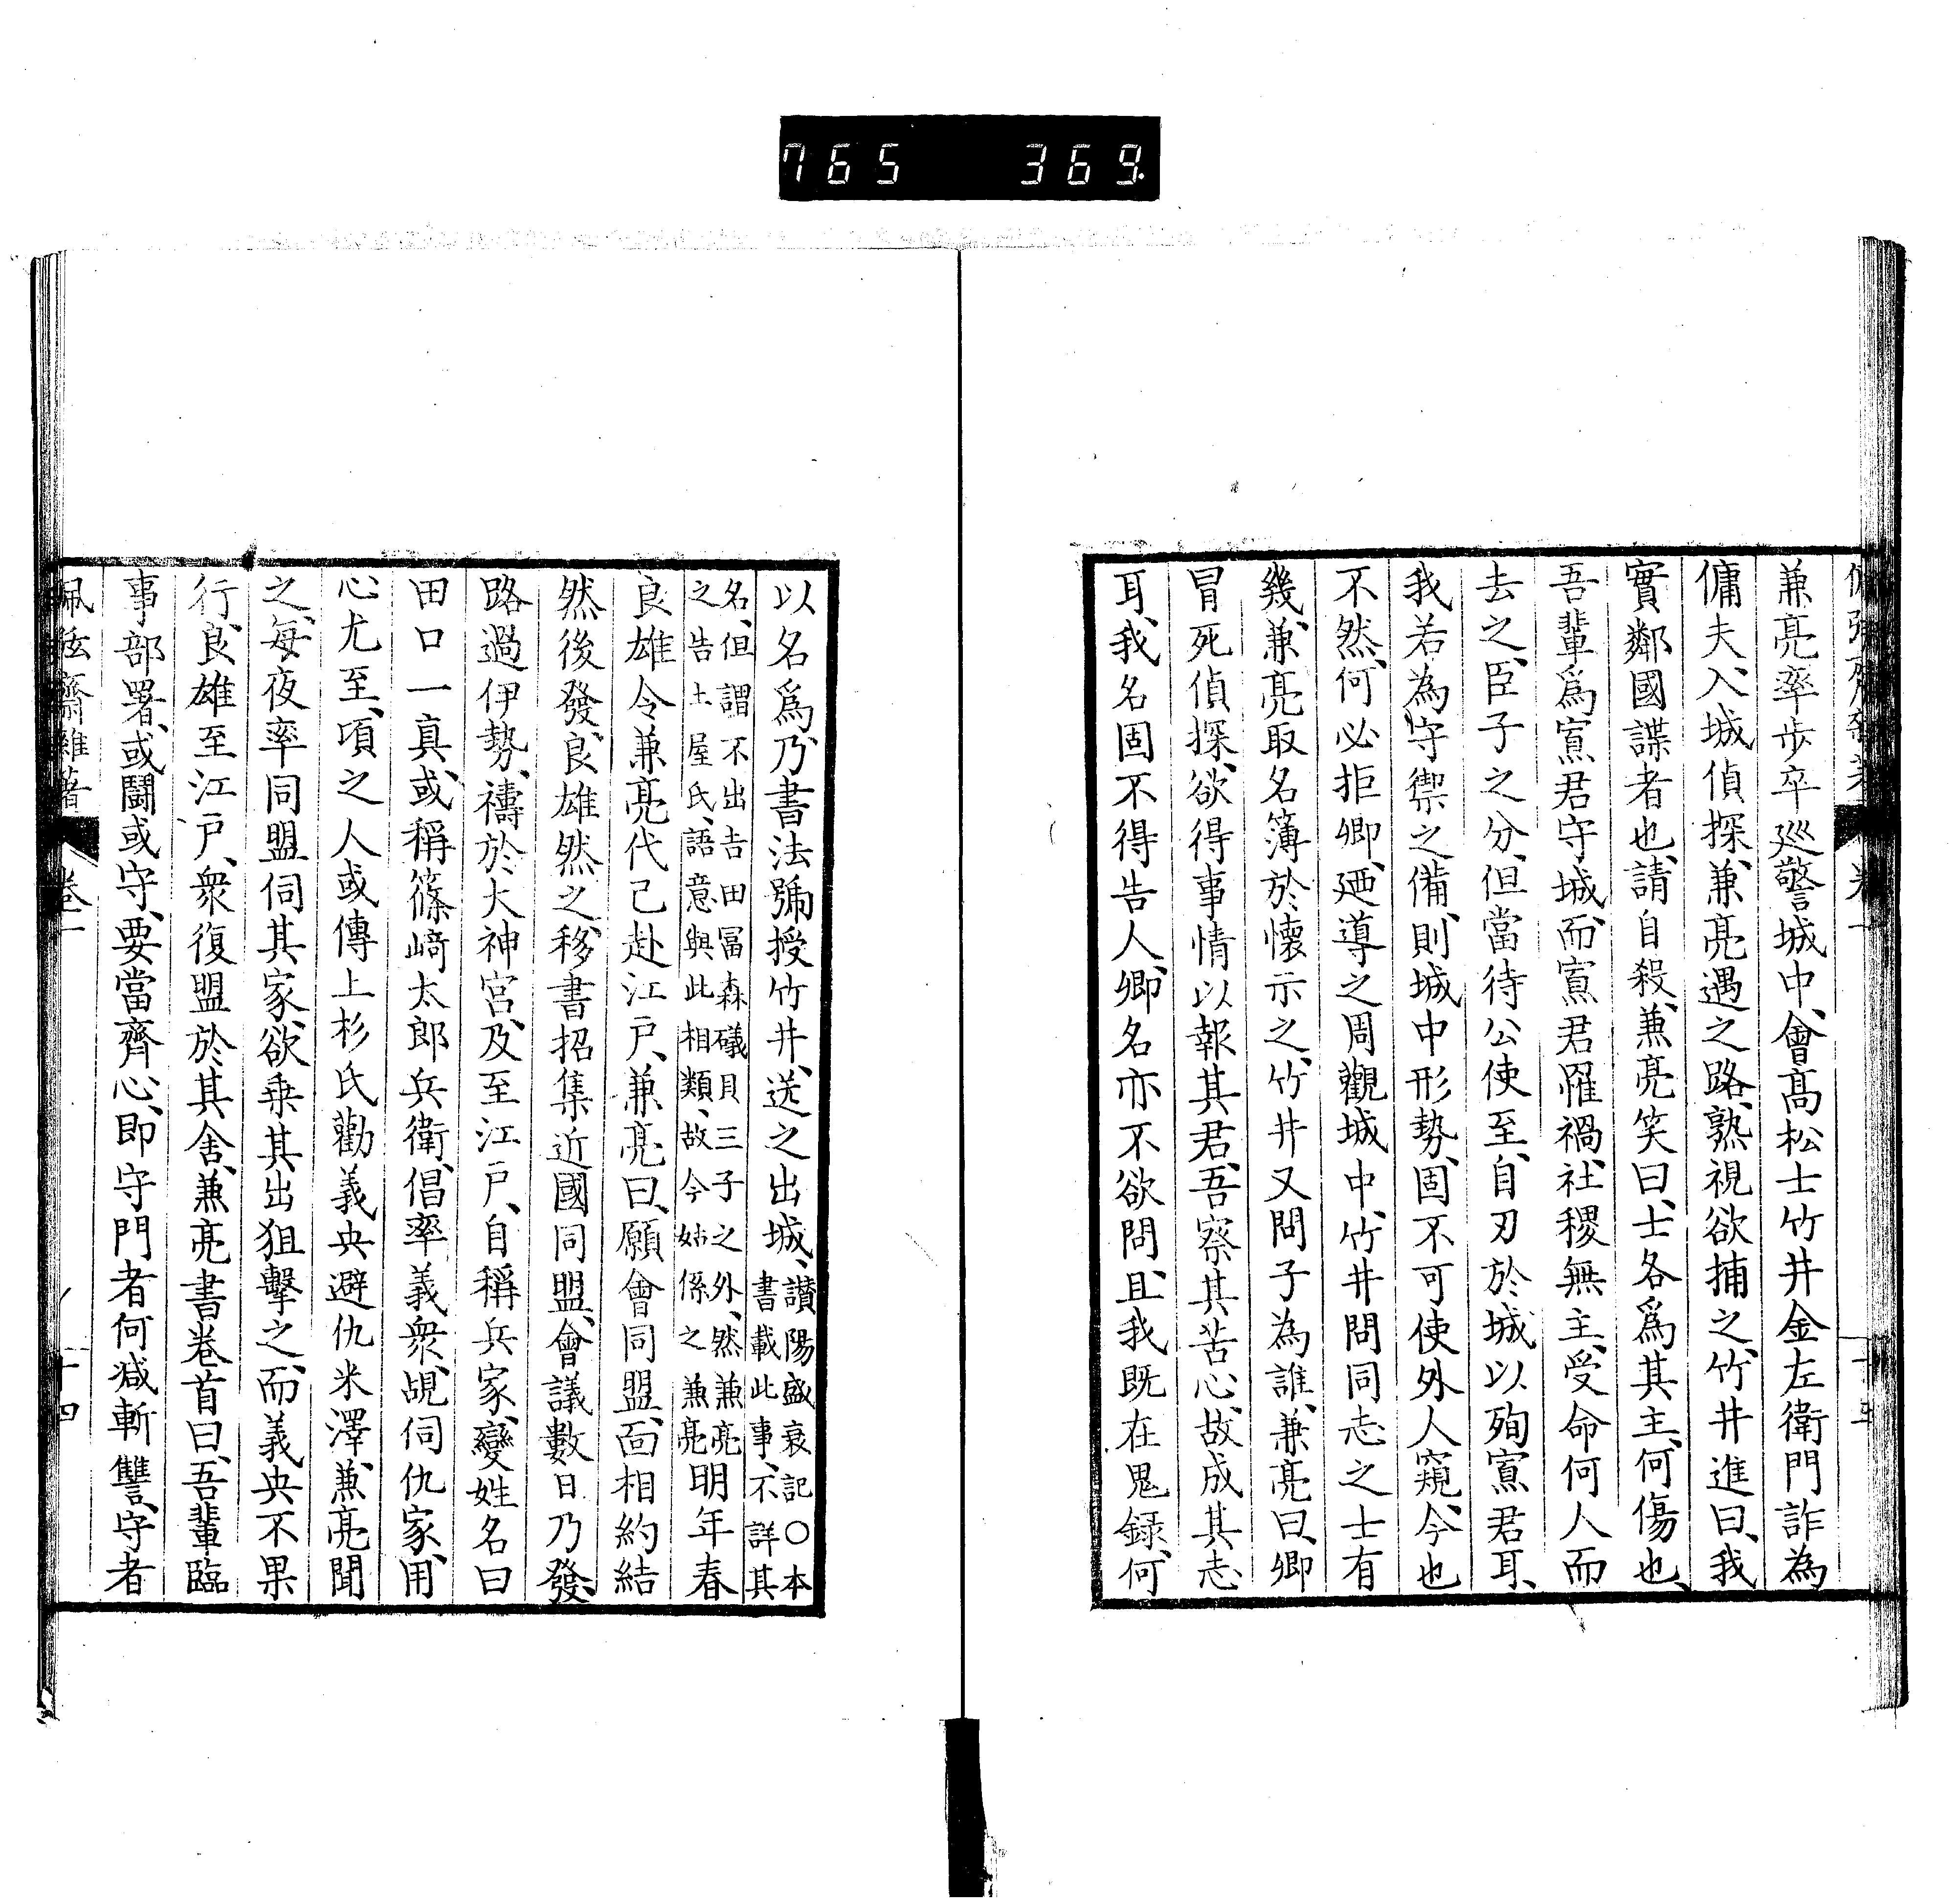 765 369.
兼亮率步卒巡警城中、會髙松士竹井金左衛門詐為
傭夫、入城偵探、兼亮遇之路、熟視欲捕之、竹井進曰、我
實鄰國諜者也、請自殺、兼亮笑曰、士各爲其主、何傷也、
吾輩爲寡君守城、而寡君罹禍、社稷無主、受命何人而
去之、臣子之分、但當待公使至、自刃於城以殉寡君耳、
我若為守禦之備、則城中形勢、固不可使外人窺、今也
不然、何必拒卿、廼導之周觀城中、竹井問同志之士有
幾、兼亮取名簿於懷示之、竹井又問子為誰、兼亮曰、卿
冒死偵探、欲得事情以報其君、吾察其苦心、故成其志
耳、我名固不得告人、卿名亦不欲問、且我既在鬼録、何
以名爲、乃書法號授竹井、送之出城、讃陽盛衰記○本
書載此事、不詳其
名、但謂不出吉田冨森礒貝三子之外、然兼亮
之告土屋氏、語意與此相類、故今姑係之兼亮明年春
良雄令兼亮代己赴江戸、兼亮曰、願會同盟、面相約結
然後發、良雄然之、移書招集近國同盟、會議數日乃發、
路過伊勢、禱於大神宮、及至江戸、自稱兵家、變姓名曰
田口一真、或稱篠﨑太郎兵衛、倡率義衆、覘伺仇家、用
心尤至、頃之人或傳上杉氏勸義央避仇米澤、兼亮聞
之、每夜率同盟伺其家、欲乗其出狙擊之、而義央不果
行、良雄至江戸、衆復盟於其舍、兼亮書卷首曰、吾輩臨
事部署、或鬪或守、要當齊心、即守門者何減斬讐、守者
佩弦齋雜著 卷一 十四